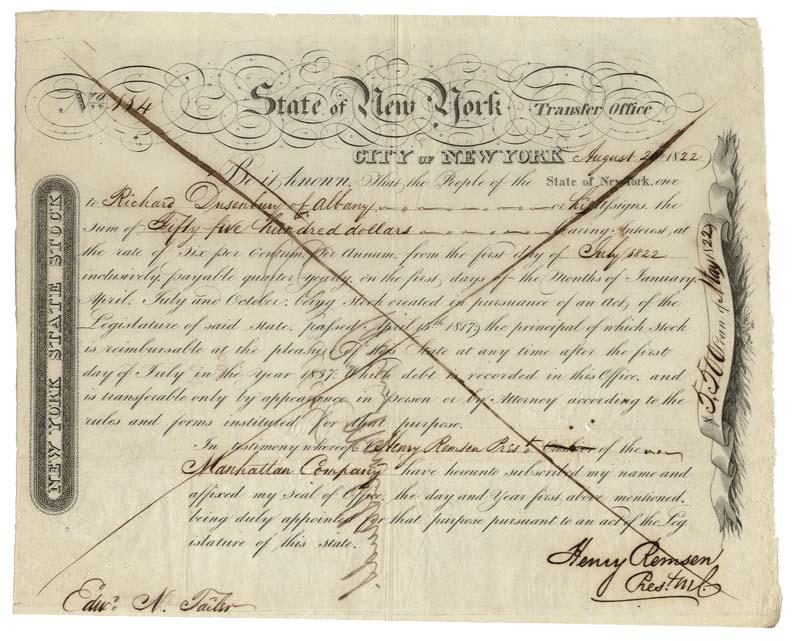 No. 114 State of New York Transfer Office
CITY OF NEW YORK August 2d 1822
Be it known, That the People of the State of New York, owe
to Richard Dusenbury of Albany or his assigns, the
Sum of Fifty five hundred dollars bearing Interest, at
the rate of Six per Centum Per Annum, from the first day of July 1822
inclusively, payable quarter yearly, on the first days of the Months of January,
April, July and October; being Stock created in pursuance of an Act, of the
Legislature of said State, passed April 15th 1817; the principal of which Stock
is reimbursable at the pleasure of this State at any time after the first
day of July in the Year 1837. Which debt is recorded in this Office, and
is transferable only by appearance in person or by Attorney according to the
rules and forms instituted for that purpose.
In testimony whereof I Henry Remsen Prest. Cashier of the
Manhattan Company have hereunto subscribed my name and
affixed my Seal of Office, the day and Year first above mentioned,
being duly appointed for that purpose pursuant to an act of the Leg
islature of this state.
Henry Remsen
Prest. M.C.
Edwd. N. Tailer
NEW YORK STATE STOCK
Loan of May 1822